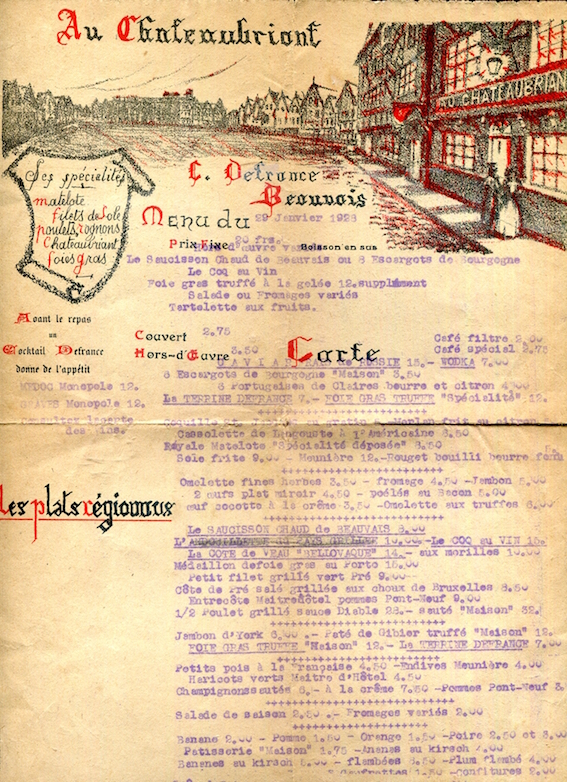 Au Chateaubriant
AU CHATEAUBRIAN
Ses spécialités
matelote
filets de Sole
poulets, rognons
Chateaubriant
foies gras
C. Defrance
Beauvois
Menu du
29 Janvier 1928
20 frs.
Prix Fixe Boisson en sus
Le Saucisson Chaud de Beauvais ou 6 Escargots de Bourgogne
Le Coq au Vin
Foie gras truffé à la gelée 12. supplément
Salade ou Fromages variés
Tartelette aux fruits.
Avant le repas
un
Cocktail Defrance
donne de l'appétit
MEDOC Monopole 12.
GRAVES Monopole 12.
Consulter lacarte
des vins.
Couvert 2.75
Hors-d'Œuvre 3.50
Carte
Café filtre 2.00
Café spécial 2.75
CAVIAR RUSSIE 15.- WODKA 7.00
6 Escargots de Bourgogne "Maison" 3.50
6 Portugaises de Claires beurre et citron 4.00
La TERRINE DEFRANCE 7.- FOIE GRAS TRUFFE "Spécialité" 12.
au gratin - Merlan frit au citron
Cassolette de Langouste à l'Américaine 8.50
Royale Matelote "Spécialité déposée" 6.50
Sole frite 9.00 - Meunière 12.-Rouget bouilli beurre fondu
Omelette fines herbes 3.50 - fromage 4.50 -Jambon 5.00
2 œufs plat miroir 4.50 - poélés au Bacon 5.00
œuf cocotte à la crême 3.50 -Omelette aux truffes 6.
Les plats régionaux
Le SAUCISSON CHAUD de BEAUVAIS 6.00
L'ANDOUILLETTE de PAYS GRILLEE 10.00.-Le COQ au VIN 10.
La COTE de VEAU "BELLOVAQUE" 14.- aux morilles 10.00
Médaillon defoie gras au Porto 15.00
Petit filet grillé vert Pré 9.00
Côte de Pré salé grillée aux choux de Bruxelles 8.50
Entrecôte Maitredôtel pommes Pont-Neuf 9.00
1/2 Poulet grillé sauce Diable 28.- sauté "Maison" 32.
Jambon d'York 6.00 .- Paté de Gibier truffé "Maison" 12.
FOIE GRAS TRUFFE "Maison" 12.- La TERRINE DEFRANCE 7.00
Petits pois à la Française 4.50 -Endives Meunière 4.00
Haricots verts Maitre d'Hôtel 4.50
Champignonssautés 6.- À la crême 7.50 -Pommes Pont-Neuf 3.
Salade de saison 2.50 .- Fromages variés 2.00
Banane 2.00 - Pomme 1.50 - Orange 1.50 -Poire 2.50 et 3.00
Patisserie "Maison" 1.75 -Ananas au kirsch 4.00
Bananes au kirsch 5.00 - flambées 6.50 -Plum flambé 4.00
-confitures 2.00